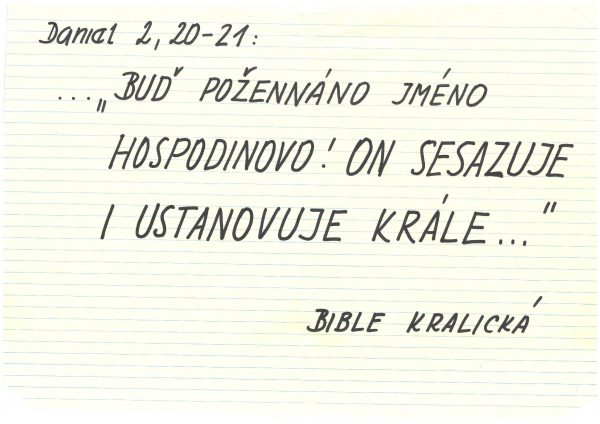 Daniel 2, 20-21:
..."BUĎ POŽENNÁNO JMÉNO
HOSPODINOVO! ON SESAZUJE
I USTANOVUJE KRÁLE..."
BIBLE KRALICKÁ